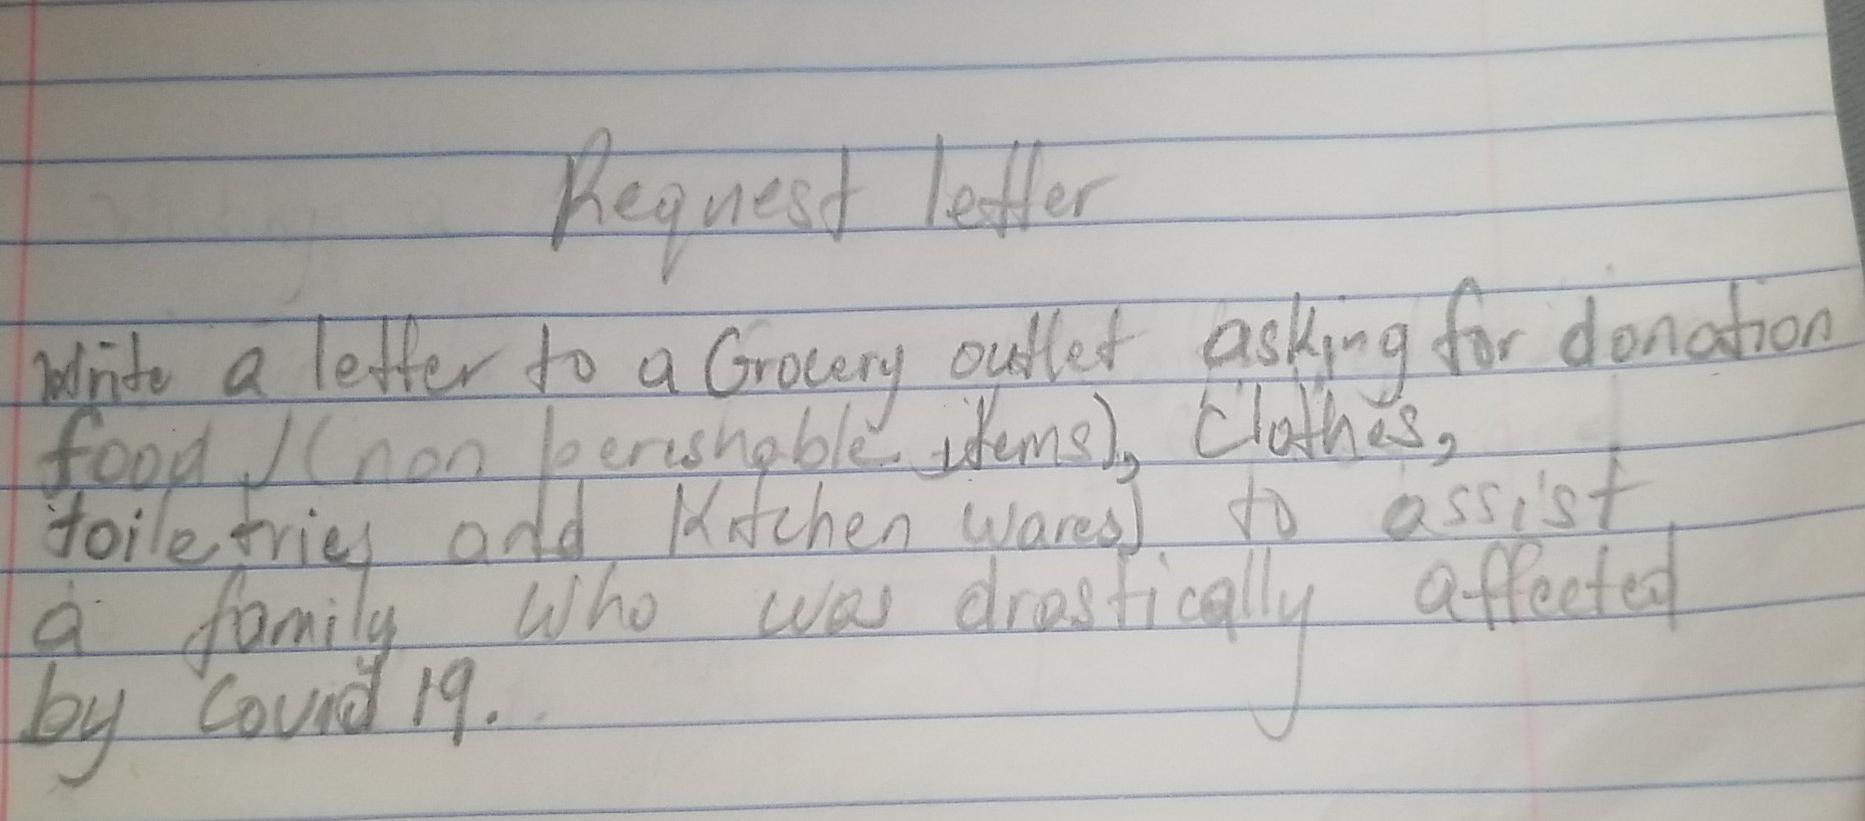 Request letter
Write a letter to a Grocery outlet asking for donation
food /(non pereshable items), Clothes,
toiletries and Kitchen wares) to assist
a family who was drastically affected
by Covid 19.